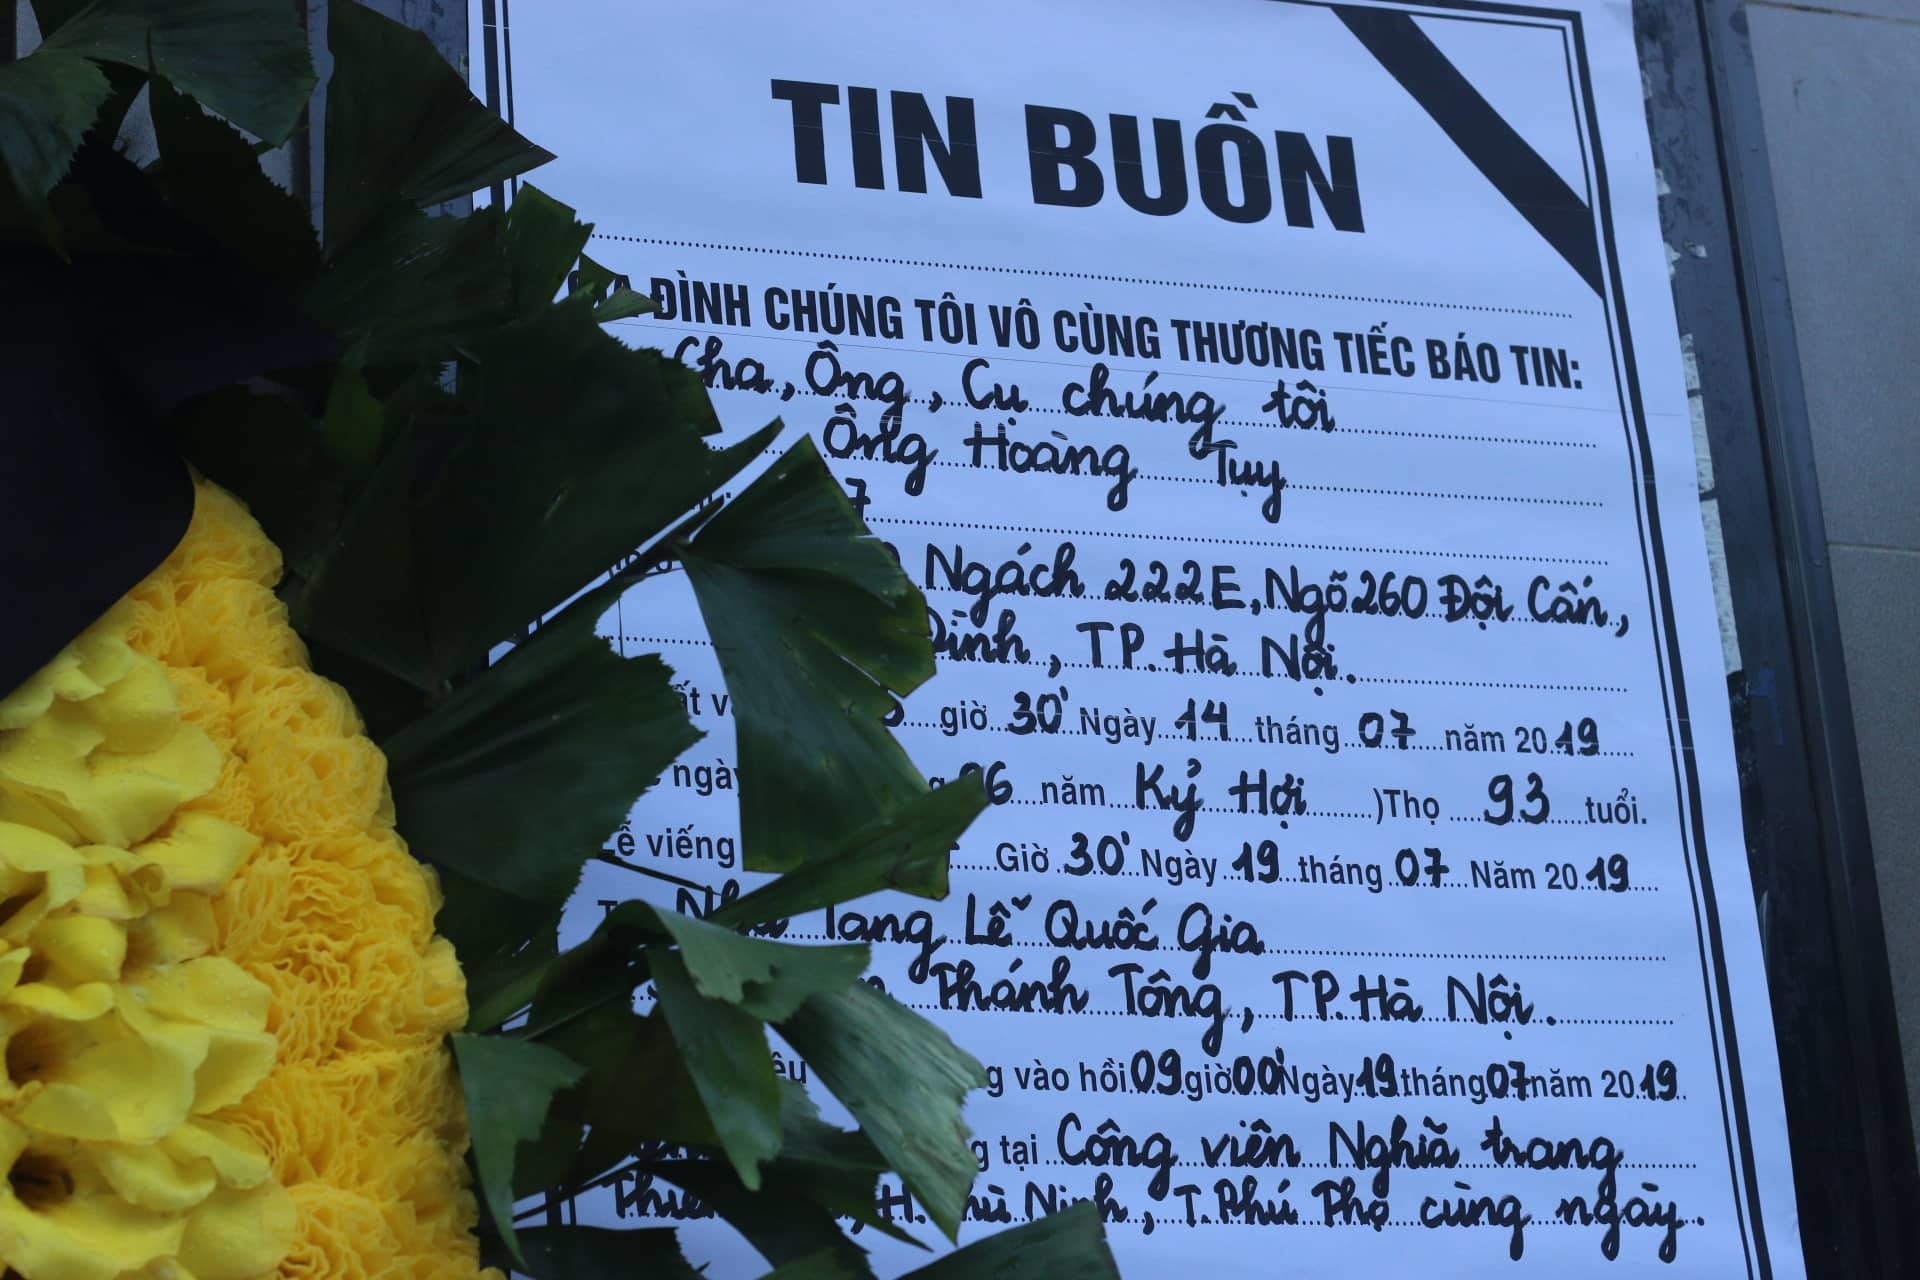 TIN BUỒN
ĐÌNH CHÚNG TÔI VÔ CÙNG THƯƠNG TIẾC BÁO TIN:
Cha, Ông, Cụ chúng tôi
Ông Hoàng Tụy
7
Ngách 222E, Ngõ 260 Đội Cấn,
Đình, TP. Hà Nội.
giờ 30' Ngày 14 tháng 07 năm 2019
ngày 06 năm Kỷ Hợi )Thọ 93 tuổi.
Lễ viếng Giờ 30' Ngày 19 tháng 07 Năm 2019
Nhà Tang Lễ Quốc Gia
Thánh Tông, TP. Hà Nội.
vào hồi 09 giờ 00' Ngày 19 tháng 07 năm 2019
tại Công viên Nghĩa trang
H. Phù Ninh, T. Phú Thọ cùng ngày.